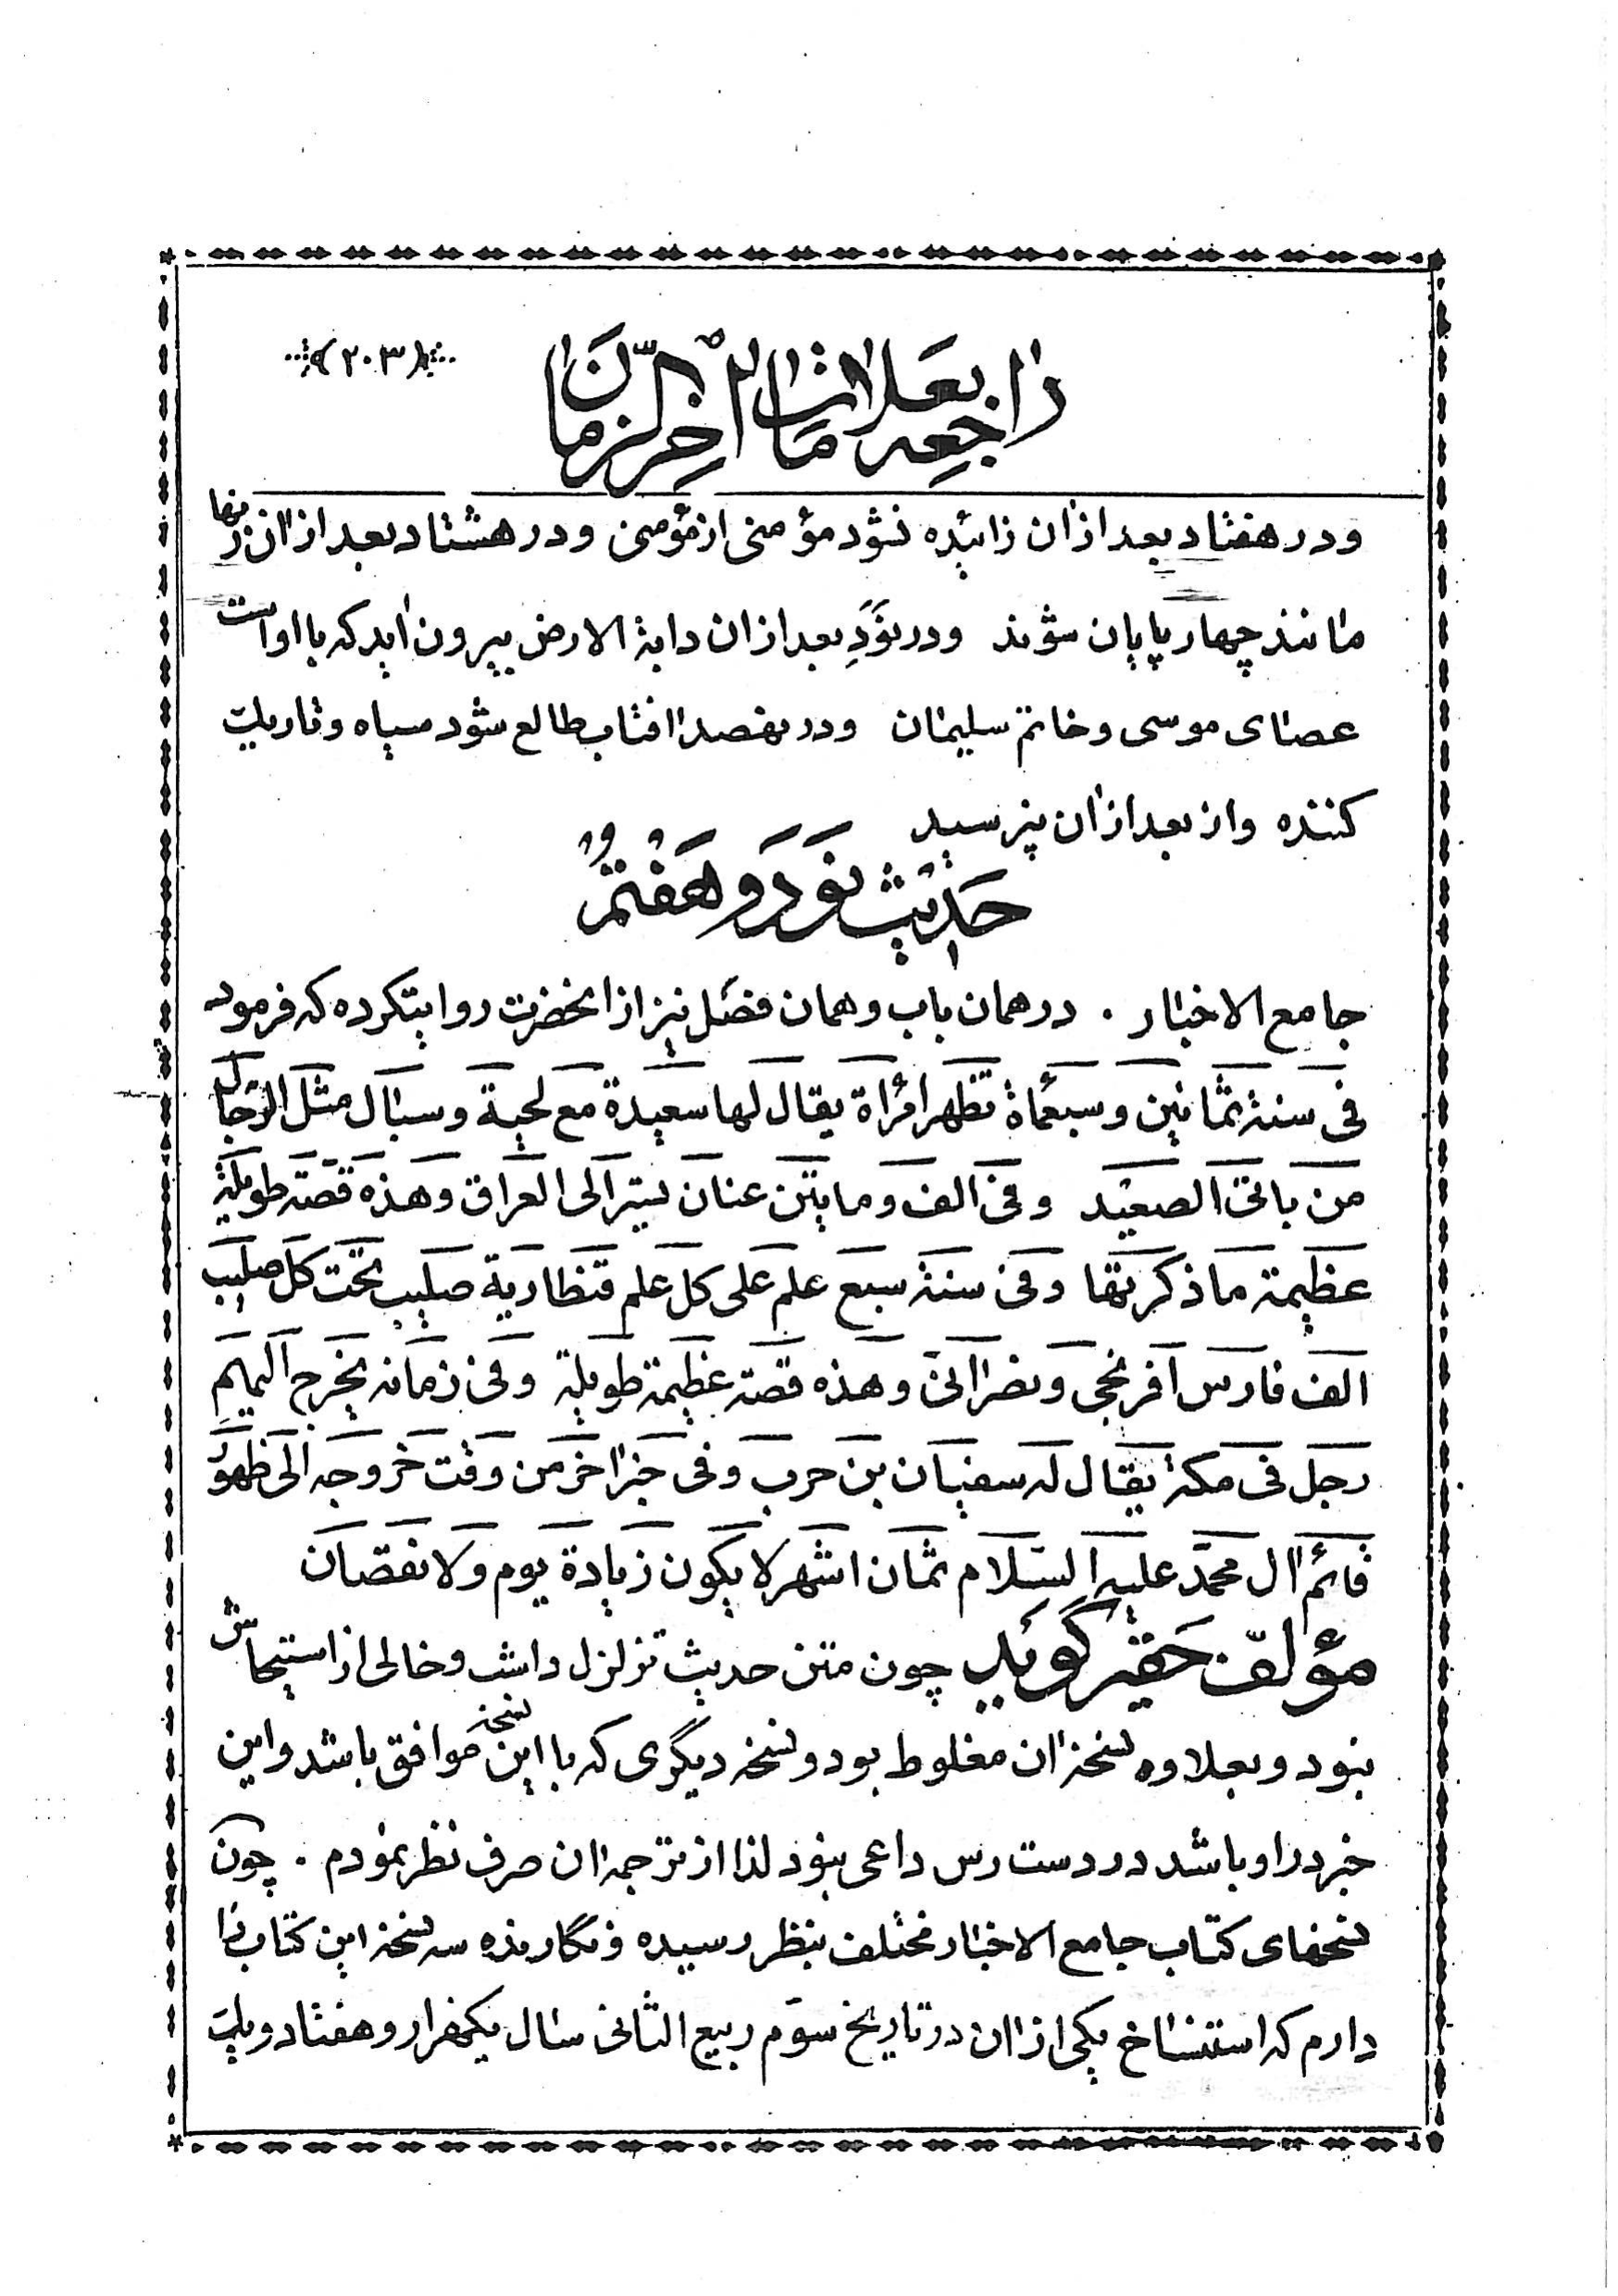 (۲۰۳)
راجعه بعلامات آخر الزمان
ودر هفتاد بعد ازان زائیده نشود مؤمنی از مؤمنی ودر هشتاد بعد ازان زنها
مانند چهار پایان شوند ودر نود بعد ازان دابة الارض بیرون اید که با اواست
عصای موسی و خاتم سلیمان ودر نهصد افتاب طالع شود سیاه و تاریک
کننده واز بعد ازان نپرسید
حدیث نود و هفتم
جامع الاخبار . در همان باب و همان فصل نیز از انحضرت روایتکرده که فرمود
فی سنة ثمانین وسبعمأة تظهر امرأة یقال لها سعیدة مع لحیة وسبال مثل الرجال
من یاتی الصعید وفی الف ومایتین عنان یسیر الی العراق وهذه قصّة طویلة
عظیمة ما ذکرتها وفی سنة سبع علم علی کل علم قنظاریة صلیب تحت کل صلیب
الف فارس افرنجی ونصرانی وهذه قصّة عظیمة طویلة وفی زمانه یخرج الیهم
رجل فی مکة یقال له سفیان بن حرب وفی خبر اخر من وقت خروجه الی ظهور
قائم ال محمّد علیه السّلام ثمان اشهر لا یکون زیادة یوم ولا نقصان
مؤلّف حقیر گوید چون متن حدیث تزلزل داشت وخالی از استیحاش
نبود وبعلاوه نسخهٔ ان مغلوط بود ونسخه دیگری که با این نسخه موافق باشد واین
خبر در او باشد در دست رس داعی نبود لذا از ترجمهٔ ان صرف نظر نمودم . چون
نسخهای کتاب جامع الاخبار مختلف بنظر رسیده ونگارنده سه نسخهٔ این کتاب را
دارم که استنساخ یکی از ان در تاریخ سوّم ربیع الثانی سال یکهزار وهفتاد ویک